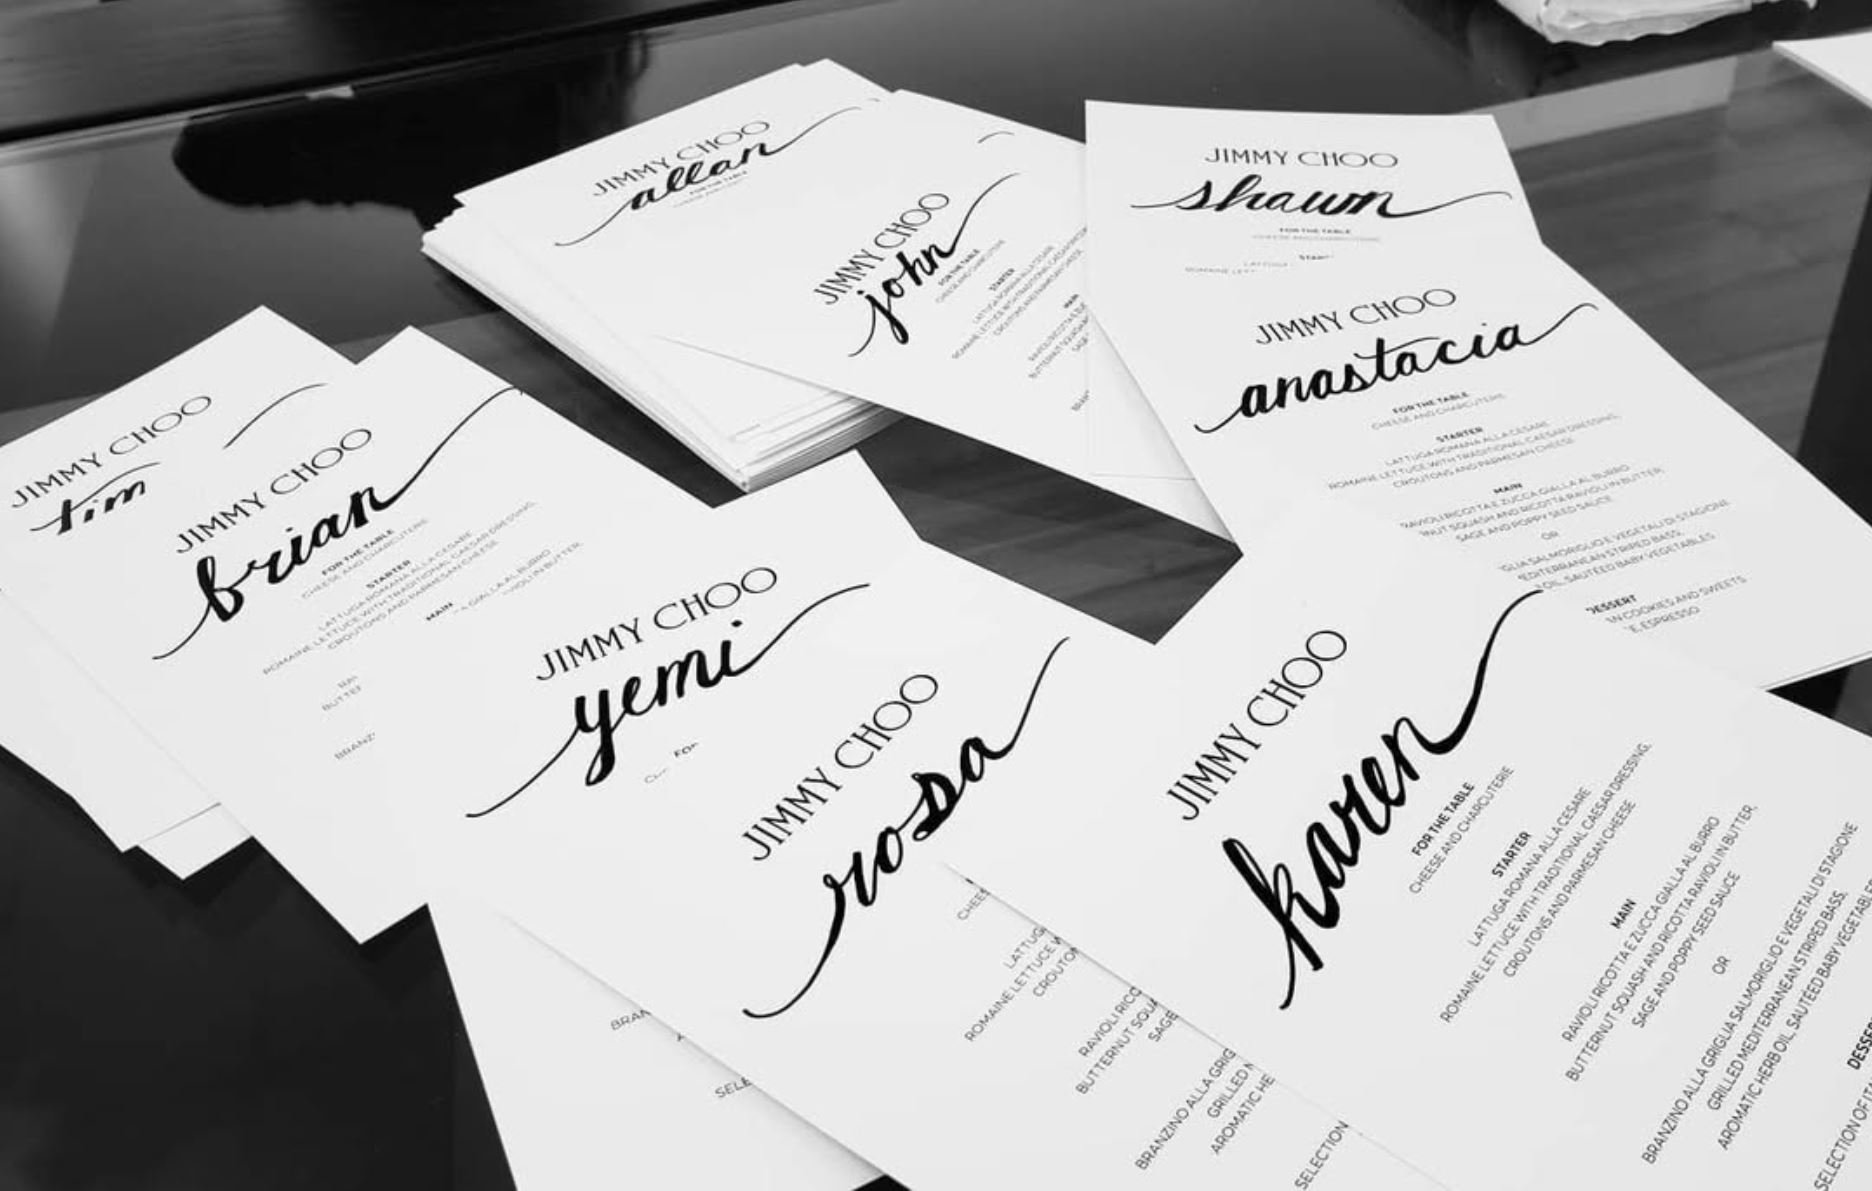 JIMMY CHOO
allan
FOR THE TABLE
JIMMY CHOO
john
FOR THE TABLE
CHEESE AND CHARCUTERIE
STARTER
LATTUGA ROMANA ALLA CESARE
ROMAINE LETTUCE WITH TRADITIONAL CAESAR DRESSING,
CROUTONS AND PARMESAN CHEESE
MAIN
JIMMY CHOO
shawn
FOR THE TABLE
CHEESE AND CHARCUTERIE
LATTUGA
JIMMY CHOO
anastacia
FOR THE TABLE
CHEESE AND CHARCUTERIE
STARTER
LATTUGA ROMANA ALLA CESARE
ROMAINE LETTUCE WITH TRADITIONAL CAESAR DRESSING,
CROUTONS AND PARMESAN CHEESE
MAIN
RAVIOLI RICOTTA E ZUCCA GIALLA AL BURRO
NUT SQUASH AND RICOTTA RAVIOLI IN BUTTER,
SAGE AND POPPY SEED SAUCE
OR
GLIA SALMORIGLIO E VEGETALI DI STAGIONE
EDITERRANEAN STRIPED BASS,
OIL, SAUTÉED BABY VEGETABLES
DESSERT
N COOKIES AND SWEETS
E, ESPRESSO
JIMMY CHOO
tim
JIMMY CHOO
brian
FOR THE TABLE
CHEESE AND CHARCUTERIE
STARTER
LATTUGA ROMANA ALLA CESARE
ROMAINE LETTUCE WITH TRADITIONAL CAESAR DRESSING,
CROUTONS AND PARMESAN CHEESE
MAIN
GIALLA AL BURRO
VIOLI IN BUTTER,
BUTTE
BRANZ
JIMMY CHOO
yemi
FOR
BRAN
SELE
JIMMY CHOO
rosa
CHEES
LATTUG
ROMAINE LETTUCE W
CROUTON
RAVIOLI RICO
BUTTERNUT SQUA
SAGE
BRANZINO ALLA GRIG
GRILLED M
AROMATIC HE
SELECTION
JIMMY CHOO
karen
FOR THE TABLE
CHEESE AND CHARCUTERIE
STARTER
LATTUGA ROMANA ALLA CESARE
ROMAINE LETTUCE WITH TRADITIONAL CAESAR DRESSING,
CROUTONS AND PARMESAN CHEESE
MAIN
RAVIOLI RICOTTA E ZUCCA GIALLA AL BURRO
BUTTERNUT SQUASH AND RICOTTA RAVIOLI IN BUTTER,
SAGE AND POPPY SEED SAUCE
OR
BRANZINO ALLA GRIGLIA SALMORIGLIO E VEGETALI DI STAGIONE
GRILLED MEDITERRANEAN STRIPED BASS,
AROMATIC HERB OIL, SAUTÉED BABY VEGETABLE
DESSE
SELECTION OF ITA